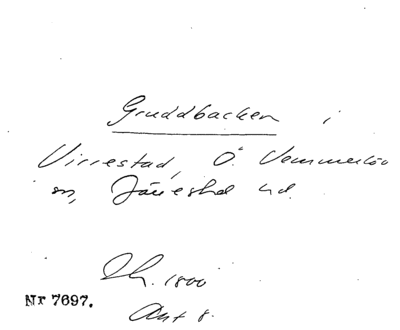 Gruddbacken i
Virrestad, Ö. Vemmerlöv
sn, Järrestad hd.
Sk. 1800
Nr 7697.
Akt 8.